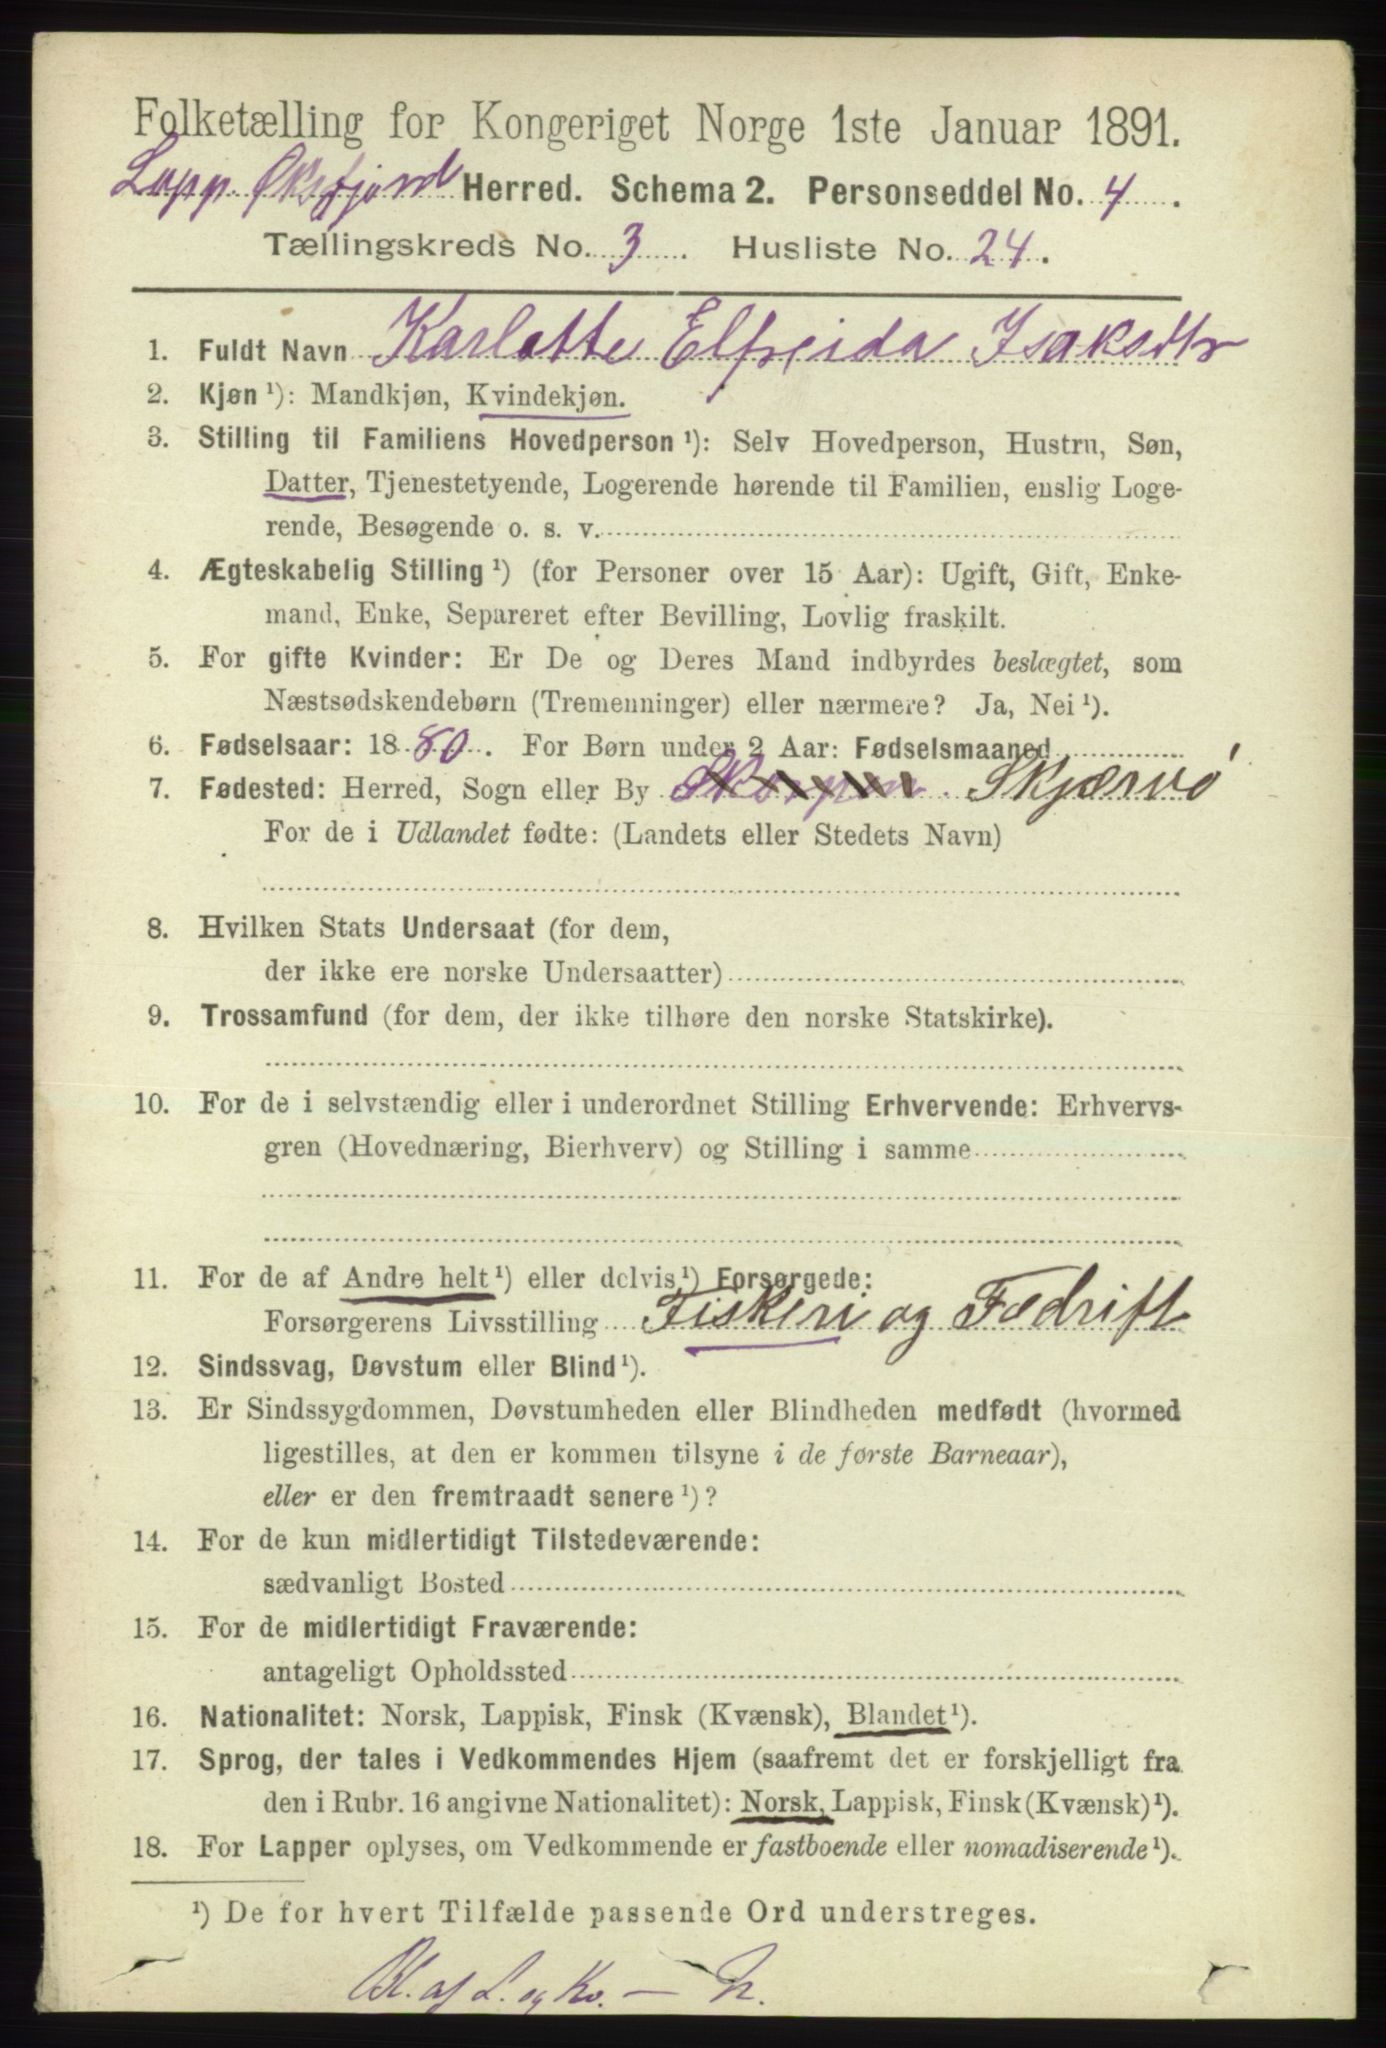 Folketælling for Kongeriget Norge 1ste Januar 1891.
Lopp. Øksfjord Herred. Schema 2. Personseddel No. 4.
Tællingskreds No. 3. Husliste No. 24.
1. Fuldt Navn Karlotte Elfreida Isaksdtr
2. Kjøn ¹): Mandkjøn, Kvindekjøn.
3. Stilling til Familiens Hovedperson ¹): Selv Hovedperson, Hustru, Søn,
Datter, Tjenestetyende, Logerende hørende til Familien, enslig Loge-
rende, Besøgende o. s. v.
4. Ægteskabelig Stilling ¹) (for Personer over 15 Aar): Ugift, Gift, Enke-
mand, Enke, Separeret efter Bevilling, Lovlig fraskilt.
5. For gifte Kvinder: Er De og Deres Mand indbyrdes beslægtet, som
Næstsødskendebørn (Tremenninger) eller nærmere? Ja, Nei ¹).
6. Fødselsaar: 1880. For Børn under 2 Aar: Fødselsmaaned
7. Fødested: Herred, Sogn eller By Skjærvø
For de i Udlandet fødte: (Landets eller Stedets Navn)
8. Hvilken Stats Undersaat (for dem,
der ikke ere norske Undersaatter)
9. Trossamfund (for dem, der ikke tilhøre den norske Statskirke).
10. For de i selvstændig eller i underordnet Stilling Erhvervende: Erhvervs-
gren (Hovednæring, Bierhverv) og Stilling i samme
11. For de af Andre helt ¹) eller delvis ¹) Forsørgede:
Forsørgerens Livsstilling Fiskeri og Fædrift
12. Sindssvag, Døvstum eller Blind ¹).
13. Er Sindssygdommen, Døvstumheden eller Blindheden medfødt (hvormed
ligestilles, at den er kommen tilsyne i de første Barneaar),
eller er den fremtraadt senere ¹)?
14. For de kun midlertidigt Tilstedeværende:
sædvanligt Bosted
15. For de midlertidigt Fraværende:
antageligt Opholdssted
16. Nationalitet: Norsk, Lappisk, Finsk (Kvænsk), Blandet ¹).
17. Sprog, der tales i Vedkommendes Hjem (saafremt det er forskjelligt fra
den i Rubr. 16 angivne Nationalitet): Norsk, Lappisk, Finsk (Kvænsk) ¹).
18. For Lapper oplyses, om Vedkommende er fastboende eller nomadiserende ¹).
¹) De for hvert Tilfælde passende Ord understreges.
Bl. af L. og Kv. — N.